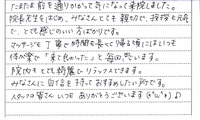 たまたま前を通りかかって気になって来院しました。
院長先生をはじめ、みなさんとても親切で、挨拶も元気
で、とても感じのいい方ばかりです。
マッサージも丁寧で時間も長くて帰る頃にはいつも
体が楽で「来て良かった」と毎回思います。
院内もとても綺麗でリラックスできます。
みなさんに自信を持っておすすめしたい所です。
スタッフの皆さんいつもありがとうございます(*^o^*)♪